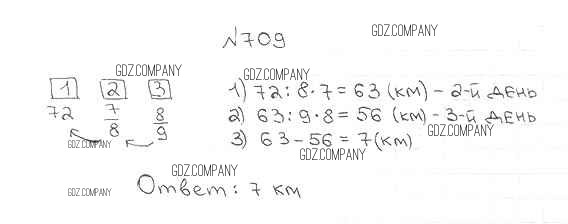 №709
GDZ.COMPANY
GDZ.COMPANY
GDZ.COMPANY
1 2 3
72 7/8 8/9
1) 72:8·7=63 (км) - 2-й день
2) 63:9·8=56 (км) - 3-й день
3) 63-56=7(км)
GDZ.COMPANY
GDZ.COMPANY
GDZ.COMPANY
GDZ.COMPANY
GDZ.COMPANY
Ответ: 7 км